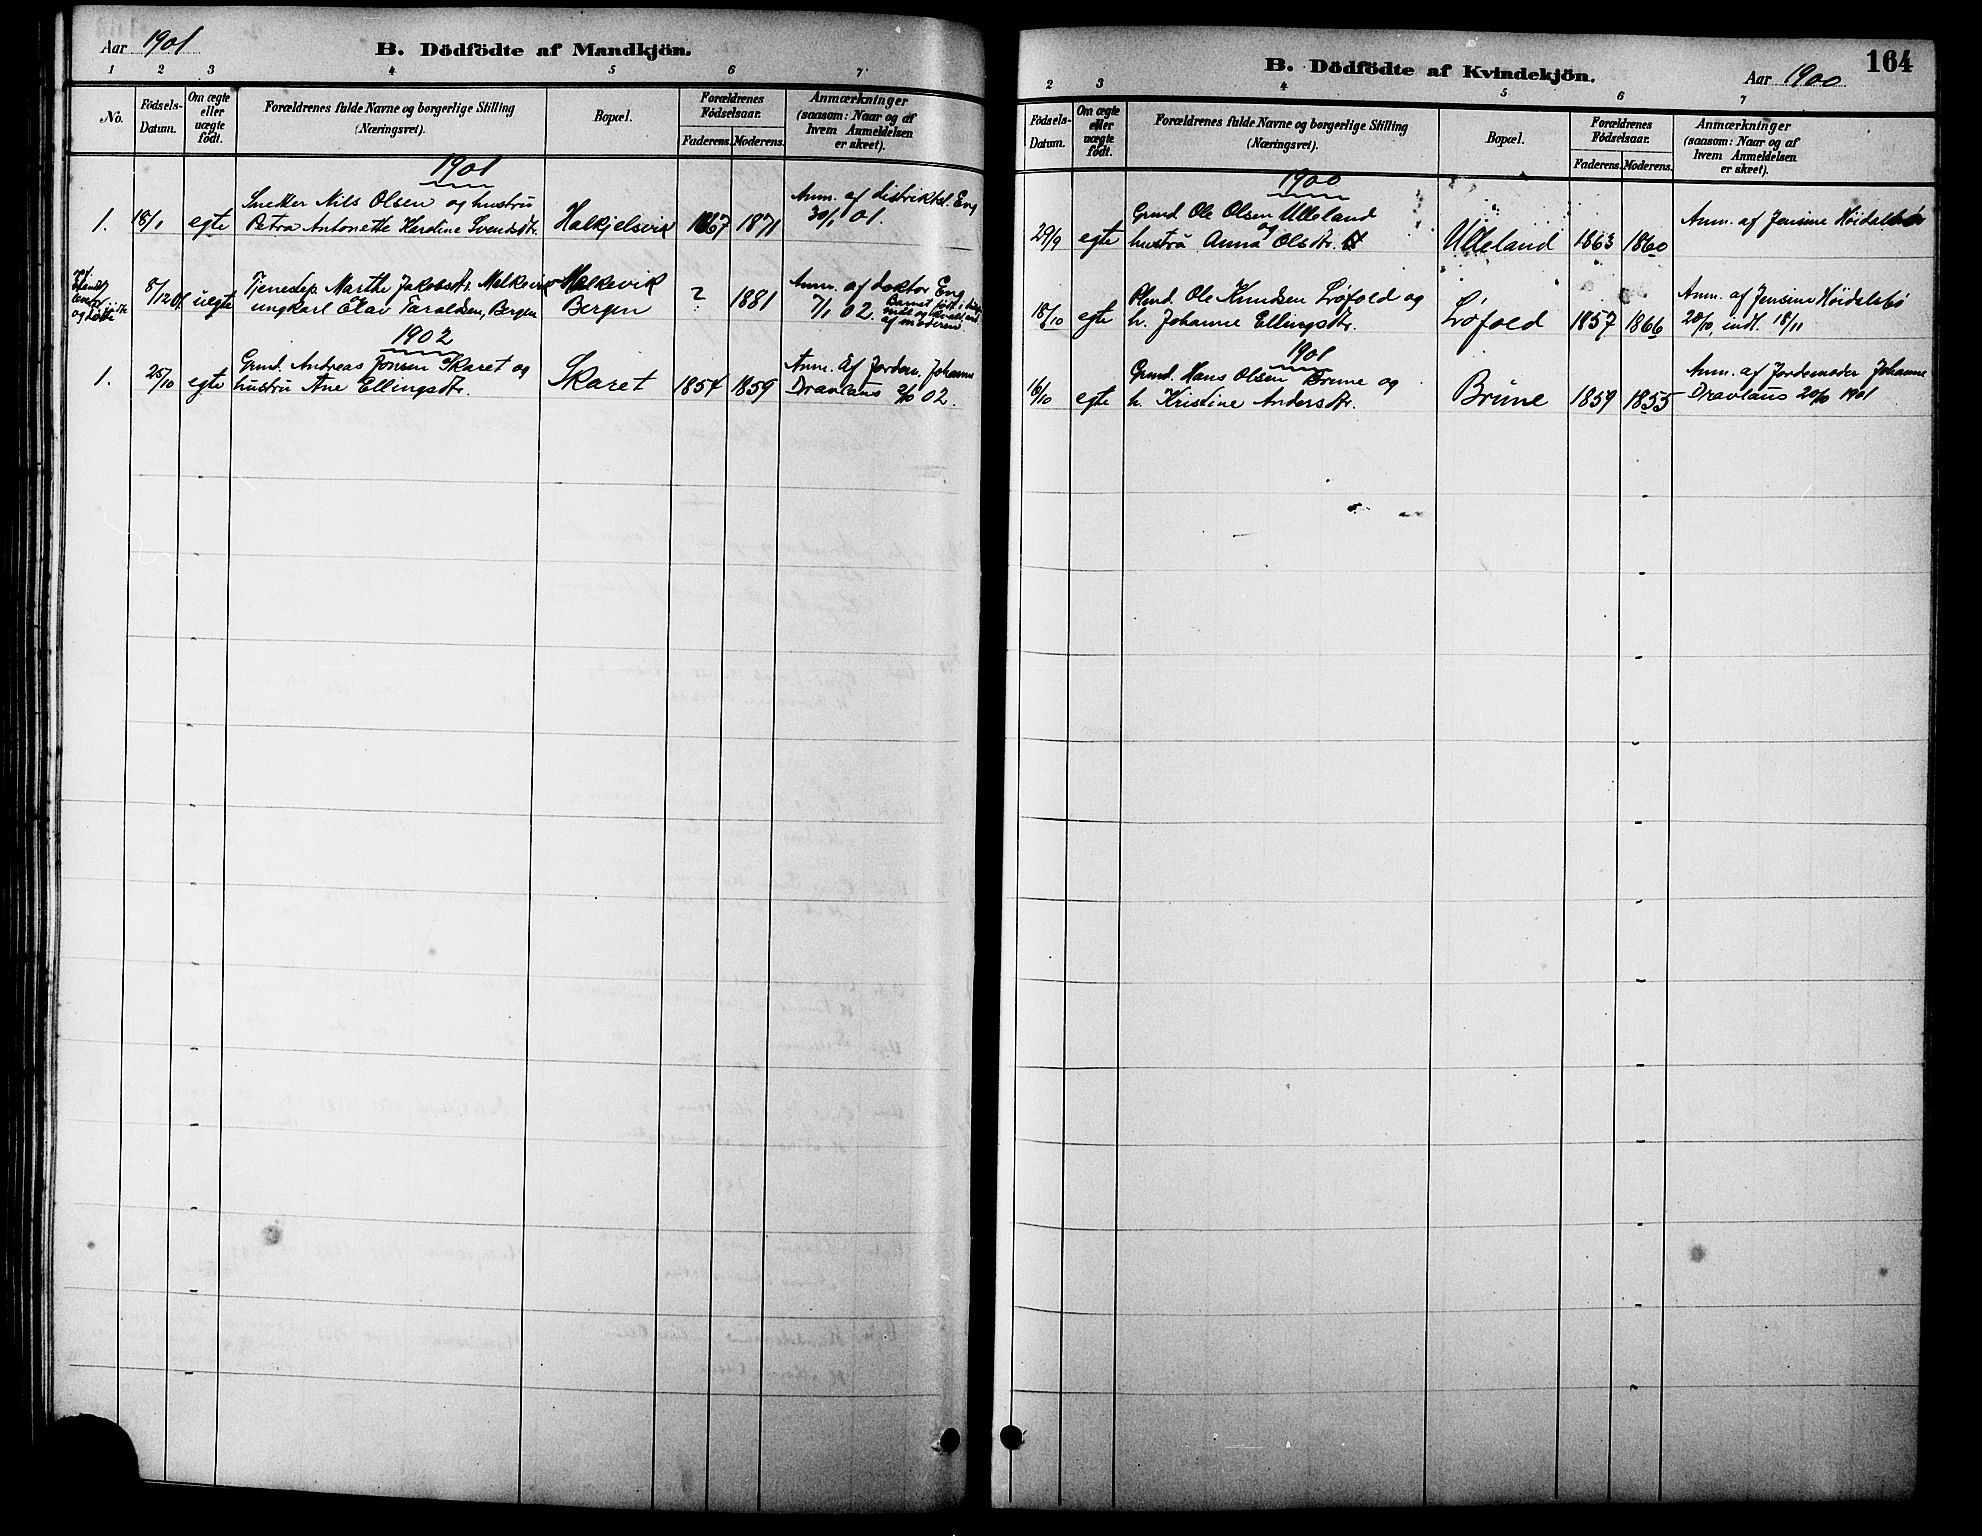 Aar 1901
B. Dödfödte af Mandkjön.
1 2 3 4 5 6 7
No.
Födsels-Datum.
Om ægte eller uægte födt.
Forældrenes fulde Navne og borgerlige Stilling
(Næringsvei).
Bopæl.
Forældrenes Födselsaar.
Faderens. Moderens.
Anmærkninger
(saasom: Naar og af
hvem Anmeldelsen
er skeet).
1901
1. 18/1 egte Snekker Nils Olsen og hustru
Petra Antonette Svendsdtr. Halkjelsvik 1867 1871
Anm. af distriktsl. Eng
30/1 01.
8/12 01 uegte Tjenestep. Marthe Jakobsdtr. Melkevik
ungkarl Olav Taraldsen, Bergen
Melkevik
Bergen
? 1881
Anm. af doktor Eng
7/1 02. Barnet født i
af moderen
1902
1. 25/10 egte Grmd. Andreas Jonsen Skaret og
hustru Ane Ellingsdtr. Skaret 1854 1859
Anm. af Jordm. Johanne
Dravlaus 02.
164
B. Dödfödte af Kvindekjön.
Aar 1900
2 3 4 5 6 7
Födsels-Datum.
Om ægte eller uægte födt.
Forældrenes fulde Navne og borgerlige Stilling
(Næringsvei).
Bopæl.
Forældrenes Födselsaar.
Faderens. Moderens.
Anmærkninger
(saasom: Naar og af
hvem Anmeldelsen
er skeet).
1900
29/9 egte Grmd. Ole Olsen Ulleland og
hustru Anna Olsdtr. Ulleland 1863 1860
Anm. af Jensine Høidalsbø
18/10 egte Ole Knudsen Løfold og
h. Johanne Ellingsdtr. Løfold 1857 1866
Anm. af Jensine Høidalsbø
20/10, indl. 18/11
1901
16/10 egte Grmd. Hans Olsen Brune og
h. Kristine Andersdtr. Brune 1859 1855
Anm. af Jordemoder Johanne
Dravlaus 20/10 1901